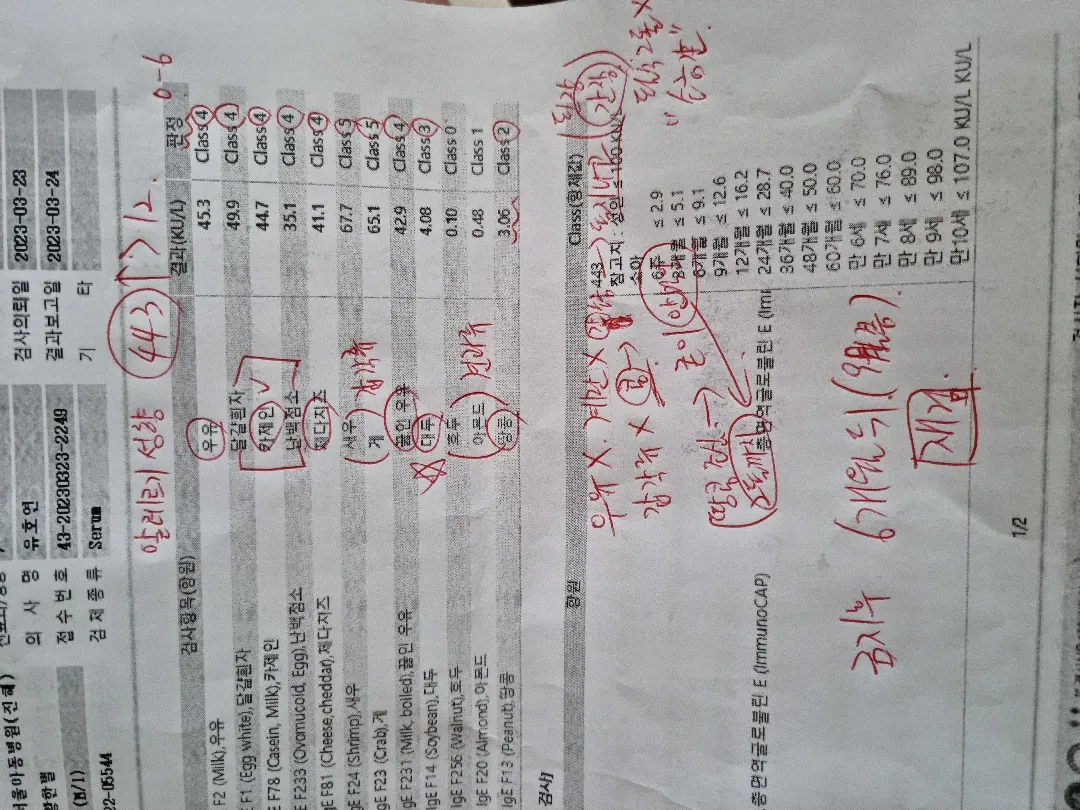 서울아동병원(진해)
의 사 명 유호연 검사의뢰일 2023-03-23
접수번호 43-20230323-2249 결과보고일 2023-03-24
(M/1) 검체종류 Serum 기 타
22-05544
알레르기 성향 443 ↑↑ > 12. 0-6
검사항목(항원) 결과(KU/L) 판정
F2 (Milk),우유 우유 45.3 Class 4
E F1 (Egg white),달걀흰자 달걀흰자 49.9 Class 4
E F78 (Casein, Milk),카제인 카제인 44.7 Class 4
E F233 (Ovomucoid, Egg),난백점소 난백점소 35.1 Class 4
gE F81 (Cheese,cheddar),체다치즈 체다치즈 41.1 Class 4
gE F24 (Shrimp),새우 새우 67.7 Class 5
gE F23 (Crab),게 게 갑각류 65.1 Class 5
gE F231 (Milk, boiled),끓인 우유 끓인 우유 42.9 Class 4
IgE F14 (Soybean),대두 대두 4.08 Class 3
IgE F256 (Walnut),호두 호두 0.10 Class 0
IgE F20 (Almond),아몬드 아몬드 견과류 0.48 Class 1
IgE F13 (Peanut),땅콩 땅콩 3.06 Class 2
검사]
항원 Class(항체값)
443
참고치 : 성인 ≤ 100 KU/L
소아
6주 ≤ 2.9
3개월 ≤ 5.1
6개월 ≤ 9.1
9개월 ≤ 12.6
12개월 ≤ 16.2
24개월 ≤ 28.7
36개월 ≤ 40.0
48개월 ≤ 50.0
60개월 ≤ 60.0
만 6세 ≤ 70.0
만 7세 ≤ 76.0
만 8세 ≤ 89.0
만 9세 ≤ 98.0
만10세 ≤ 107.0 KU/L KU/L
총면역글로불린 E (ImmunoCAP) 총면역글로불린 E (Im
우유 X. 계란 X
갑각류 X
6개월 뒤 (9월쯤).
재검
1/2